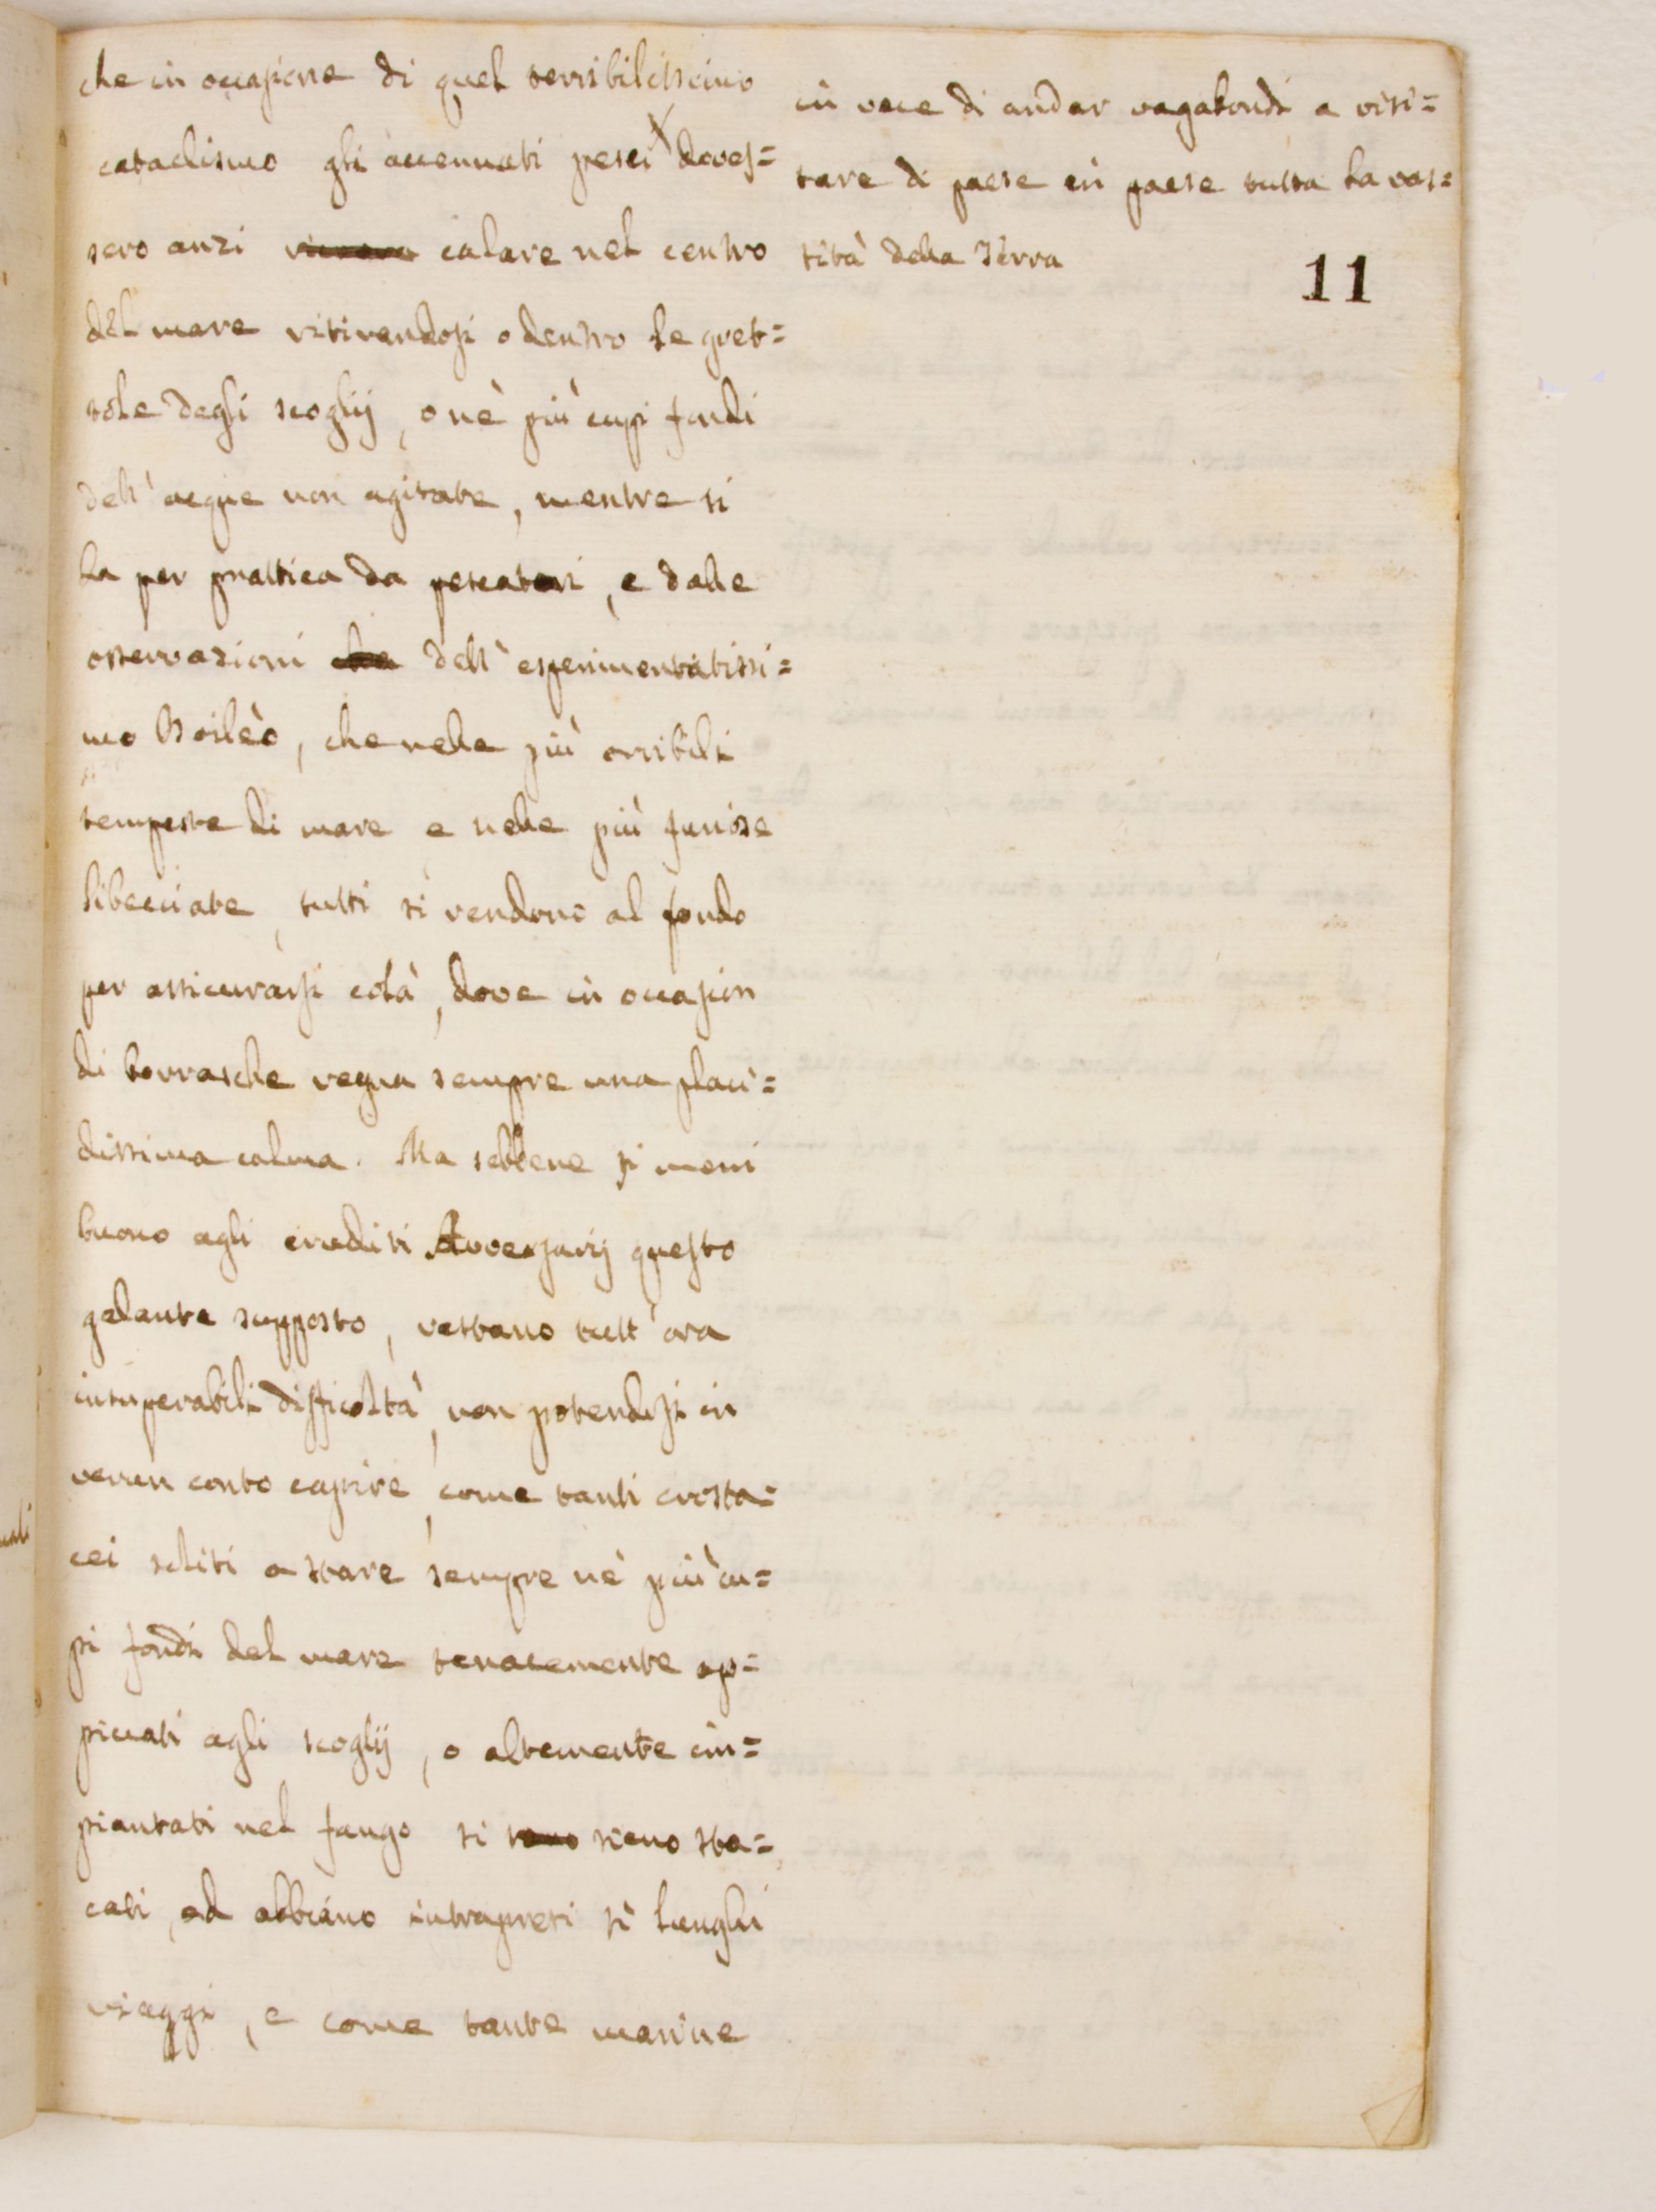 che in occasione di quel terribilissimo
cataclismo gli accennati pesci doves=
sero anzi calare nel centro
del mare ritirandosi o dentro le grot=
tole degli scoglij, o nè più cupi fondi
dell'acque non agitate, mentre si
ha per prattica da pescatori, e dalle
osservazioni che dell'esperimentatissi=
mo Boileò, che nelle più orribili
tempeste di mare e nelle più furiose
libecciate, tutti si rendono al fondo
per assicurarsi colà, dove in occasion
di borrasche regna sempre una placi=
dissima calma. Ma sebbene si meni
buono agli eruditi Avversarij questo
galante supposto, restano tutt'ora
insuperabili difficoltà, non potendosi in
verun conto capire, come tanti crosta=
cei soliti a stare sempre nè più cu=
pi fondi del mare tenacemente ap=
piccati agli scoglij, o altamente im=
piantati nel fango si sieno sta=
cati, ed abbiano intrapresi sì lunghi
viaggi, e come tante marine
in vece di andar vagabondi a visi=
tare di paese in paese tutta la vas=
tità della Terra
11